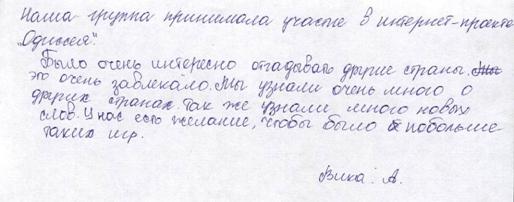 Наша группа принимала участие в интернет-проекте
„Одиссея".
Было очень интересно отгадывать другие страны. Мы
это очень завлекало. Мы узнали очень много о
других странах. Так же узнали много новых
слов. У нас есть желание, чтобы было побольше
таких игр.
Вика. А.